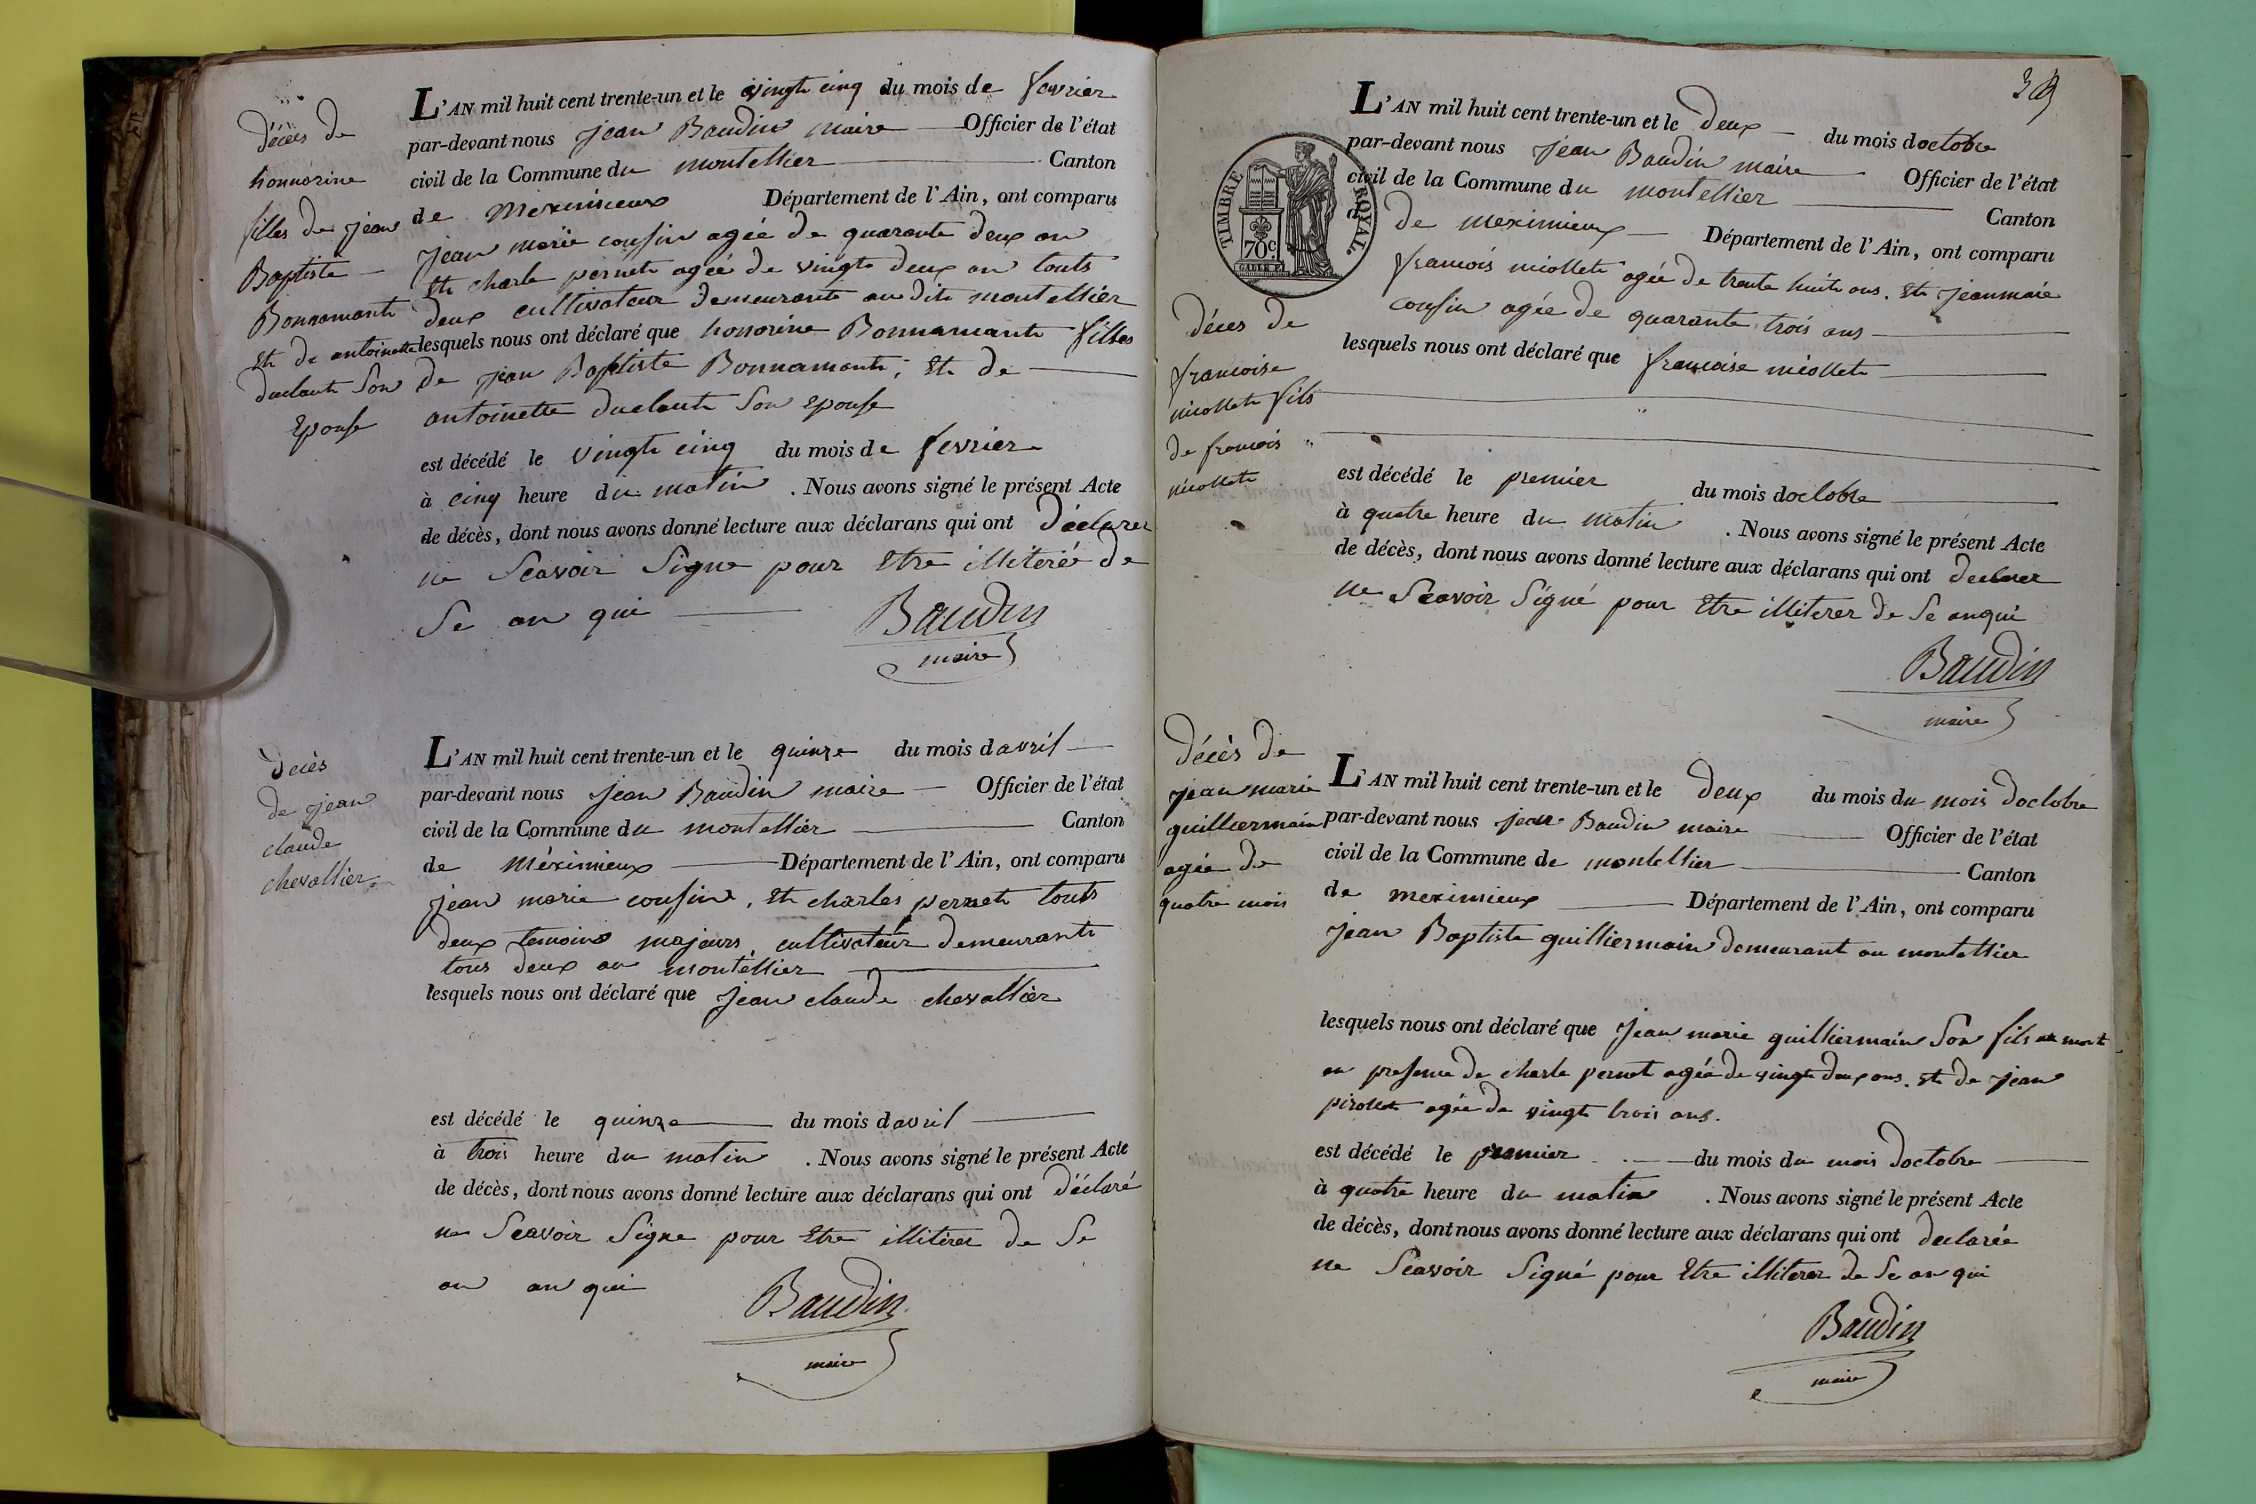 décès de
honnorine
filles de jean
Baptiste
Bonnamant
Et de antoinette
duclaut Son
Epouse
L'AN mil huit cent trente-un et le vingt cinq du mois de fevrier
par-devant nous jean Baudin maire Officier de l'état
civil de la Commune du montellier Canton
de Meximieux Département de l'Ain, ont comparu
jean marie cousin agée de quarante deux an
Et charle pernet agée de vingt deux an touts
deux cultivateur demeurants au dit montellier
lesquels nous ont déclaré que honnorine Bonnamant filles
de jean Baptiste Bonnamant ; Et de
antoinette duclaut Son Epouse
est décédé le vingt cinq du mois de fevrier
à cinq heure du matin . Nous avons signé le présent Acte
de décès, dont nous avons donné lecture aux déclarans qui ont déclarer
ne Scavoir Signe pour Etre illiteré de
Se an qui
Baudin
maire
decès
de jean
claude
chevallier
L'AN mil huit cent trente-un et le quinze du mois d avril
par-devant nous jean Baudin maire Officier de l'état
civil de la Commune du montellier Canton
de Méximieux Département de l'Ain, ont comparu
jean marie cousin, Et charles pernet touts
deux temoins majeurs, cultivateur demeurants
tous deux au montéllier
lesquels nous ont déclaré que jean claude chevallier
est décédé le quinze du mois d avril
à trois heure du matin . Nous avons signé le présent Acte
de décès, dont nous avons donné lecture aux déclarans qui ont déclaré
ne Scavoir Signe pour Etre illiterer de Se
an an qui
Baudin
maire
TIMBRE ROYAL.
70 c.
décès de
francoise
miollet fils
de francois
miollet
L'AN mil huit cent trente-un et le deux du mois doctobre
par-devant nous jean Baudin maire Officier de l'état
civil de la Commune du montellier Canton
de meximieux Département de l'Ain, ont comparu
francois miollet agée de trente huit ans. Et jeanmarie
cousin agée de quarante trois ans
lesquels nous ont déclaré que francoise miollet
est décédé le premier du mois doctobre
à quatre heure du matin . Nous avons signé le présent Acte
de décès, dont nous avons donné lecture aux déclarans qui ont declarer
ne Scavoir Signé pour Etre illiterer de Se anqui
Baudin
maire
décès de
jean marie
guilliermain
agée de
quatre mois
L'AN mil huit cent trente-un et le deux du mois du mois doctobre
par-devant nous jean Baudin maire Officier de l'état
civil de la Commune de montellier Canton
de meximieux Département de l'Ain, ont comparu
jean Baptiste guilliermain demeurant au montellier
lesquels nous ont déclaré que jean marie guilliermain Son fils mort
en presence de charle pernet agée de vingt deux ans. Et de jean
pirollet agée de vingt trois ans.
est décédé le premier du mois du mois doctobre
à quatre heure du matin . Nous avons signé le présent Acte
de décès, dont nous avons donné lecture aux déclarans qui ont declarée
ne Scavoir Signé pour Etre illiterer de Se an qui
Baudin
maire